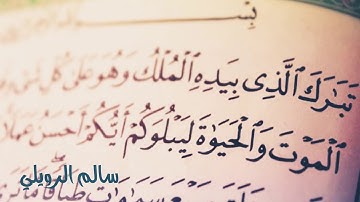 بِسْـ
تَبَٰرَكَ ٱلَّذِى بِيَدِهِ ٱلْمُلْكُ وَهُوَ عَلَىٰ كُلِّ شَىْءٍ
ٱلْمَوْتَ وَٱلْحَيَوٰةَ لِيَبْلُوَكُمْ أَيُّكُمْ أَحْسَنُ عَمَلًا
سَمَٰوَٰتٍ طِبَاقًا مَّا تَرَىٰ
سالم الرويلي